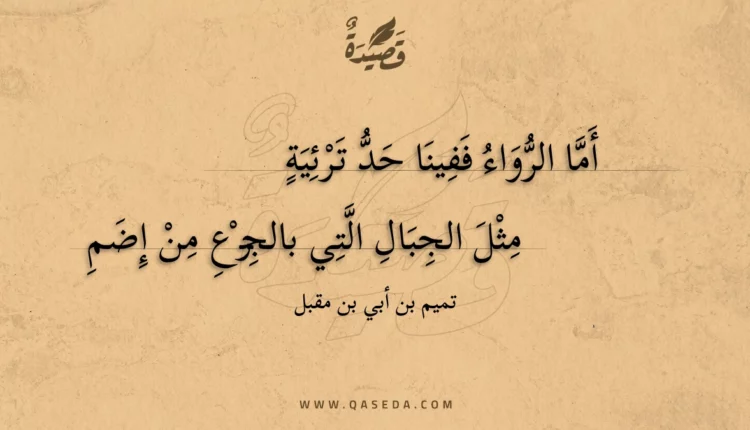 قَصِيْدَةٌ
أَمَّا الرُّوَاءُ فَفِينَا حَدُّ تَرْئِيَةٍ
مِثْلَ الجِبَالِ الَّتِي بالجِزْعِ مِنْ إِضَمِ
تميم بن أبي بن مقبل
WWW.QASEDA.COM